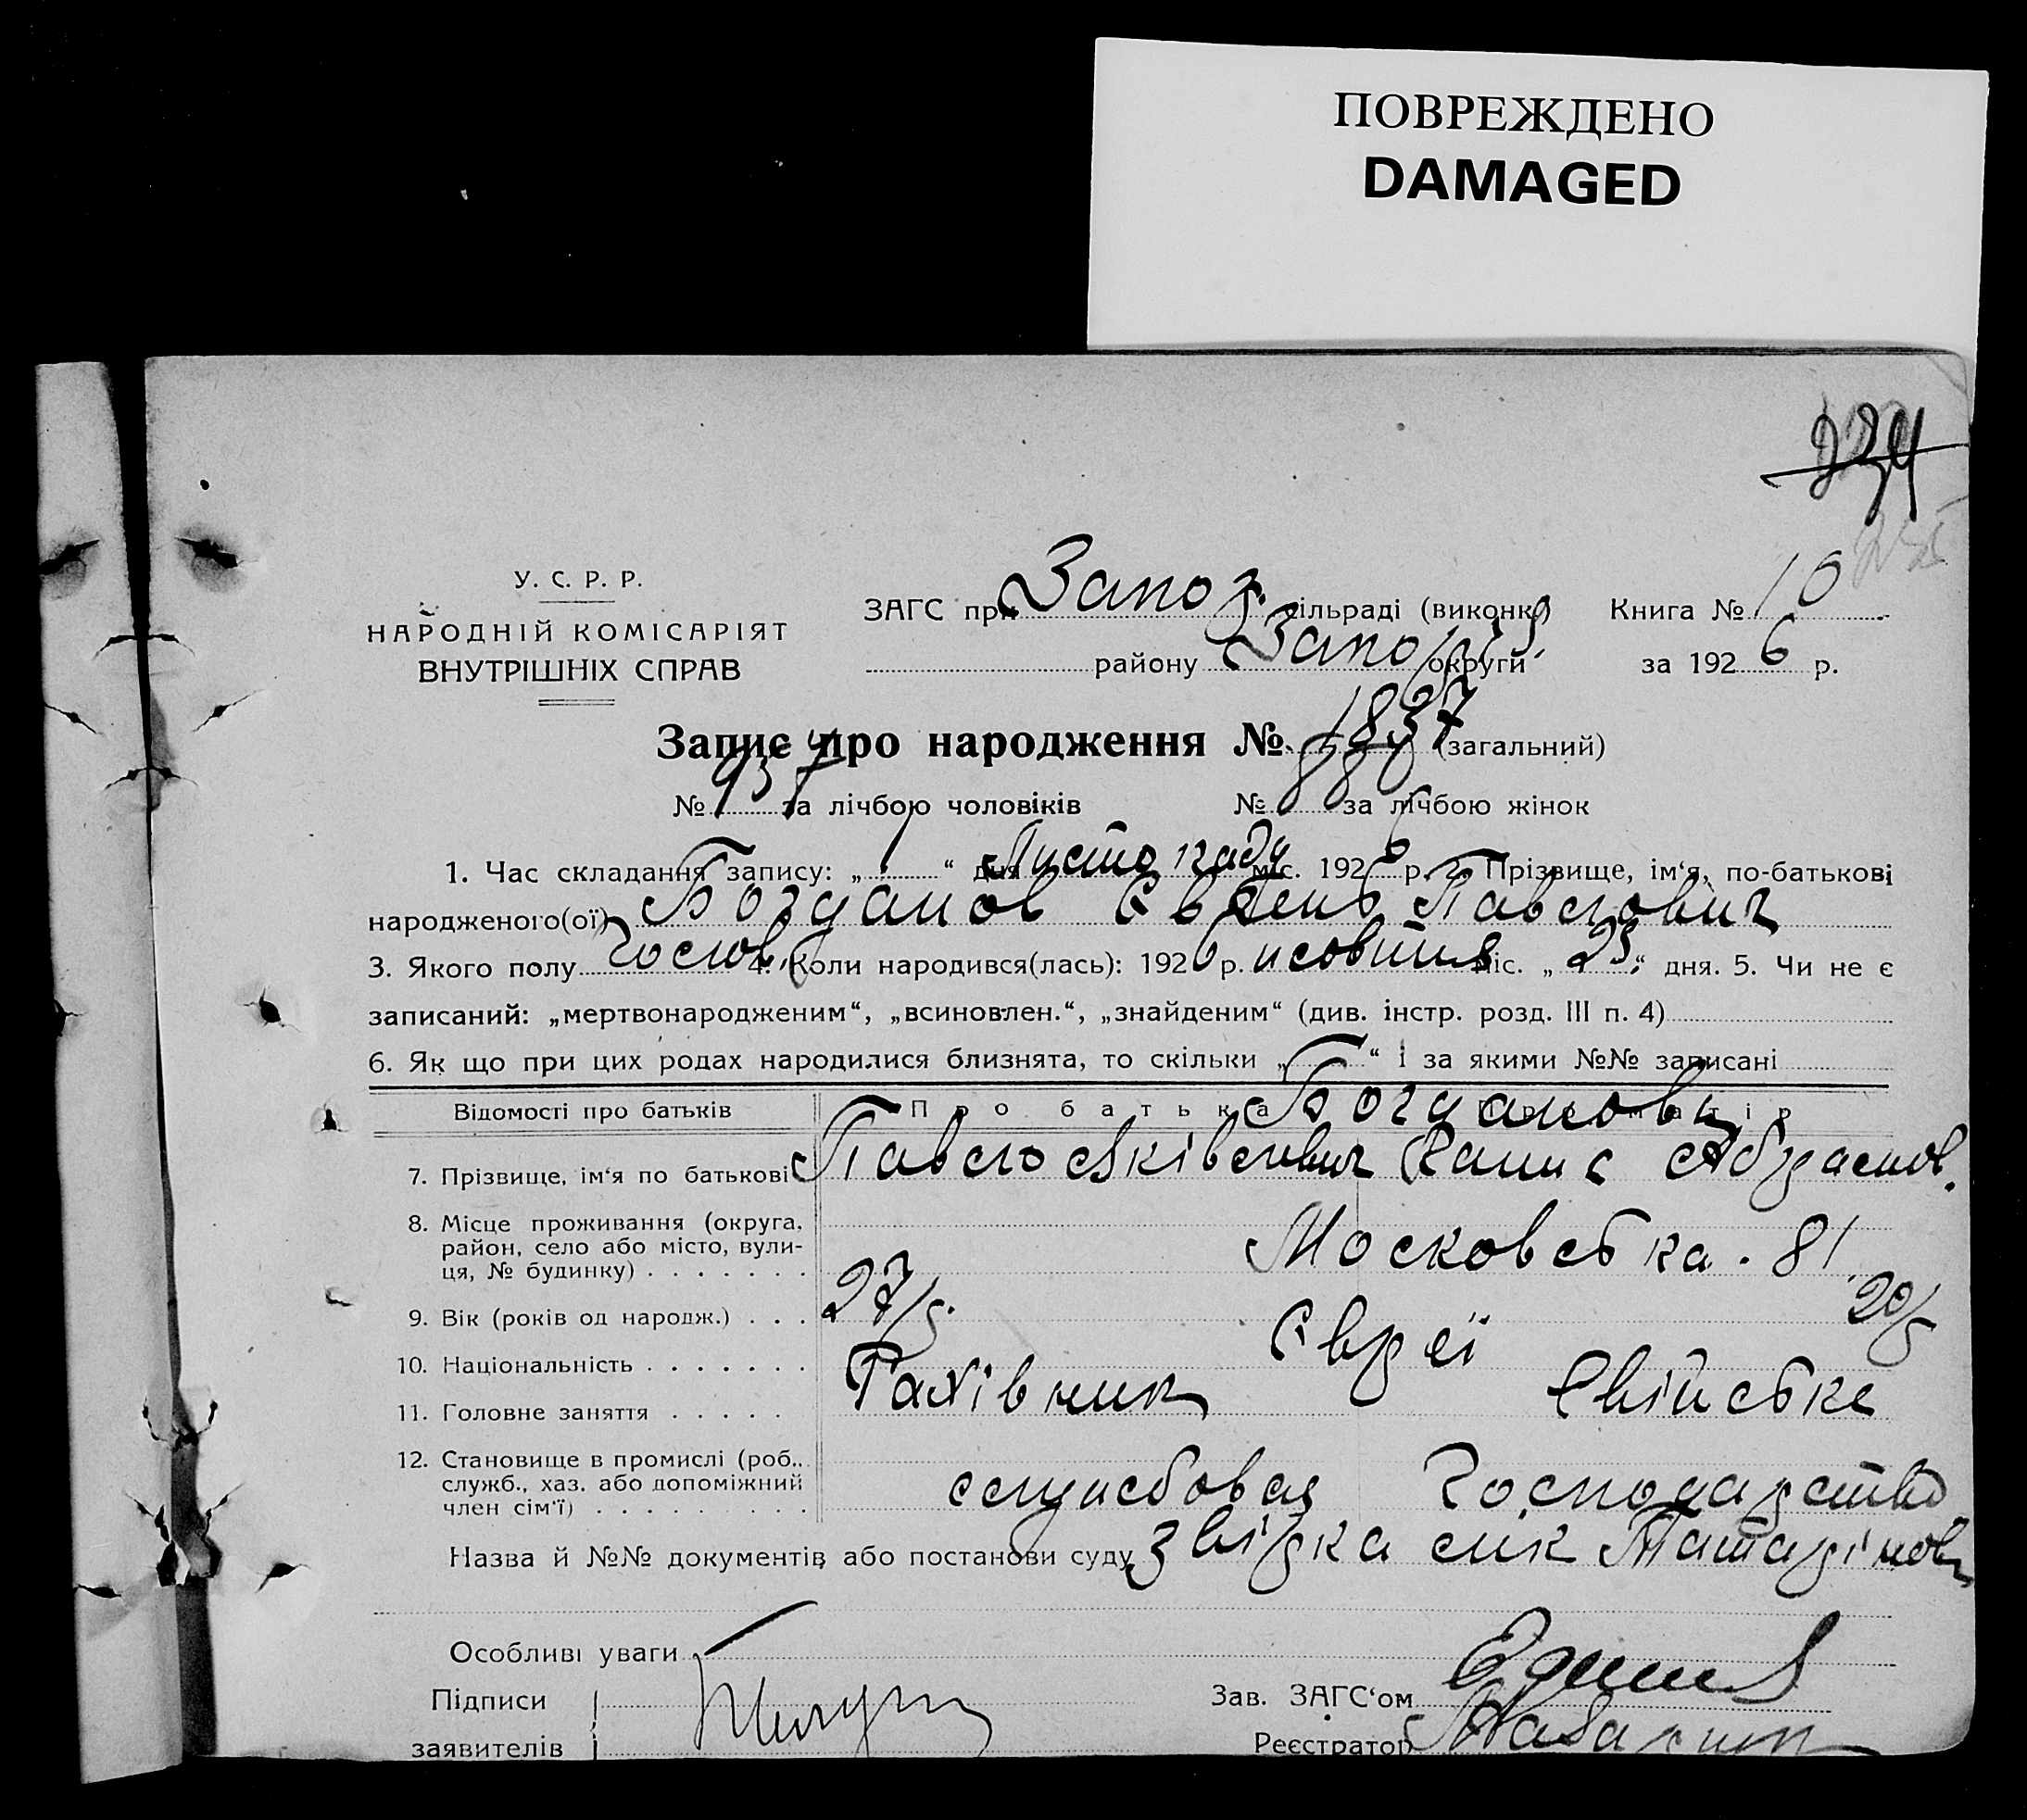 ПОВРЕЖДЕНО
DAMAGED
234
У. С. Р. Р.
НАРОДНІЙ КОМІСАРІЯТ
ВНУТРІШНІХ СПРАВ
ЗАГС при Запоз. сільраді (виконк.) Книга № 10
району Запоріз. округи за 1926 р.
Запис про народження № 1837 (загальний)
№ 957 за лічбою чоловіків № 880 за лічбою жінок
1. Час складання запису: „1“ дня Листопаду міс. 1926 р. 2. Прізвище, ім‘я, по-батькові
народженого(ої) Богданов Євгень Павлович
3. Якого полу чолов. 4. Коли народився(лась): 1926 р. жовтня міс. „25“ дня. 5. Чи не є
записаний: „мертвонародженим“, „всиновлен.“, „знайденим“ (див. інстр. розд. III п. 4)
6. Як що при цих родах народилися близнята, то скільки „ “ і за якими №№ записані
Відомості про батьків Про батька Про матір
Богданови
7. Прізвище, ім‘я по батькові Павло Абрамов.
8. Місце проживання (округа,
район, село або місто, вули-
ця, № будинку) Московська. 81
9. Вік (років од народж.) 27/5 20/5
10. Національність Євреї
11. Головне заняття Рахівник Свійське
12. Становище в промислі (роб.,
служб., хаз. або допоміжний
член сім‘ї) службовец господарство
Назва й №№ документів або постанови суду звірка
Особливі уваги
Підписи Зав. ЗАГС‘ом
заявителів Реєстратор